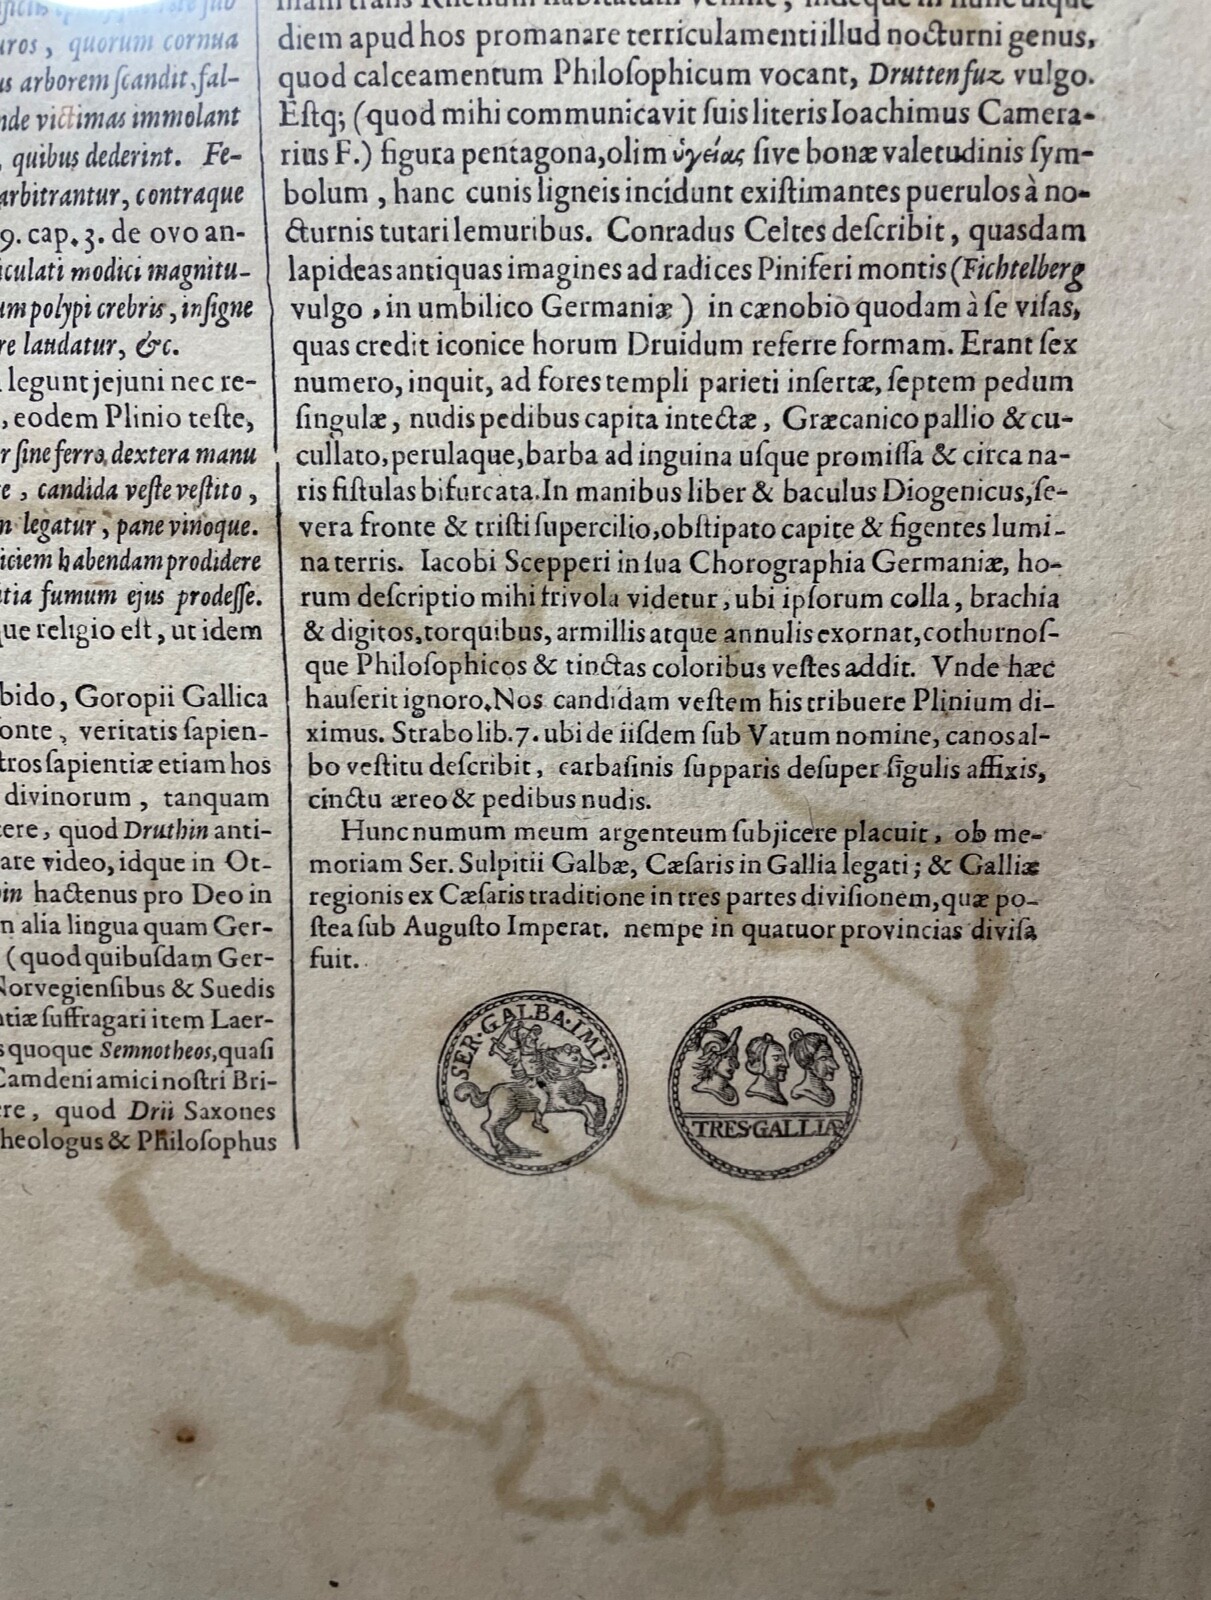 uros, quorum cornua
us arborem ſcandit, fal-
nde victimas immolant
, quibus dederint. Fe-
arbitrantur, contraque
9. cap. 3. de ovo an-
iculati modici magnitu-
um polypi crebris, inſigne
re laudatur, &c.
legunt jejuni nec re-
, eodem Plinio teſte,
r ſine ferro, dextera manu
e, candida veſte veſtito,
n legatur, pane vinoque.
iciem habendam prodidere
tia fumum ejus prodeſſe.
que religio eſt, ut idem
bido, Goropii Gallica
onte, veritatis ſapien-
tros ſapientiæ etiam hos
divinorum, tanquam
cere, quod Druthin anti-
are video, idque in Ot-
in hactenus pro Deo in
n alia lingua quam Ger-
(quod quibuſdam Ger-
Norvegienſibus & Suedis
ntiæ ſuffragari item Laer-
s quoque Semnotheos, quaſi
Camdeni amici noſtri Bri-
ere, quod Drii Saxones
heologus & Philoſophus
diem apud hos promanare terriculamenti illud nocturni genus,
quod calceamentum Philoſophicum vocant, Druttenfuz vulgo.
Eſtq; (quod mihi communicavit ſuis literis Ioachimus Camera-
rius F.) figura pentagona, olim ὑγείας ſive bonæ valetudinis ſym-
bolum, hanc cunis ligneis incidunt exiſtimantes puerulos à no-
cturnis tutari lemuribus. Conradus Celtes deſcribit, quasdam
lapideas antiquas imagines ad radices Piniferi montis (Fichtelberg
vulgo, in umbilico Germaniæ) in cænobio quodam à ſe viſas,
quas credit iconice horum Druidum referre formam. Erant ſex
numero, inquit, ad fores templi parieti inſertæ, ſeptem pedum
ſingulæ, nudis pedibus capita intectæ, Græcanico pallio & cu-
cullato, perulaque, barba ad inguina uſque promiſſa & circa na-
ris fiſtulas bifurcata. In manibus liber & baculus Diogenicus, ſe-
vera fronte & triſti ſupercilio, obſtipato capite & figentes lumi-
na terris. Iacobi Scepperi in ſua Chorographia Germaniæ, ho-
rum deſcriptio mihi frivola videtur, ubi ipſorum colla, brachia
& digitos, torquibus, armillis atque annulis exornat, cothurnoſ-
que Philoſophicos & tinctas coloribus veſtes addit. Vnde hæc
hauſerit ignoro. Nos candidam veſtem his tribuere Plinium di-
ximus. Strabo lib. 7. ubi de iiſdem ſub Vatum nomine, canos al-
bo veſtitu deſcribit, carbaſinis ſupparis deſuper figulis affixis,
cinctu æreo & pedibus nudis.
Hunc numum meum argenteum ſubjicere placuit, ob me-
moriam Ser. Sulpitii Galbæ, Cæſaris in Gallia legati; & Galliæ
regionis ex Cæſaris traditione in tres partes diviſionem, quæ po-
ſtea ſub Auguſto Imperat. nempe in quatuor provincias diviſa
fuit.
SER·GALBA·IMP.
TRES·GALLIÆ